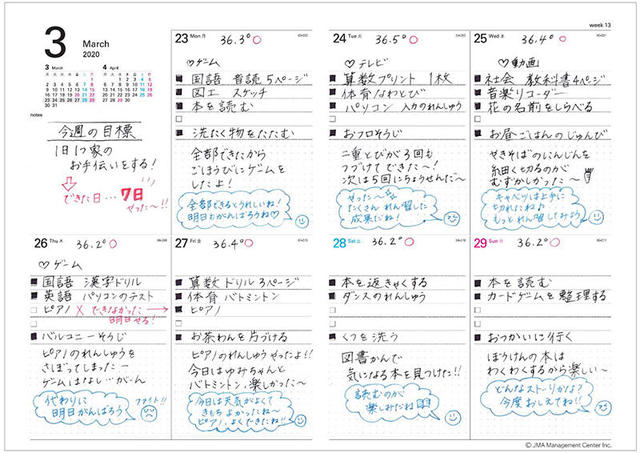 week 13
3
March
2020
3 March
4 April
notes
今週の目標
1日1つ家の
お手伝いをする!
できた日…7日
やった〜!!
23 Mon 月
36.3° ○
♡ゲーム
■ 国語 音読5ページ
■ 図工 スケッチ
■ 本を読む
□
■ 洗たく物をたたむ
全部できたから
ごほうびにゲームを
したよ!
全部できるとうれしいね!
明日もがんばろうね♡
24 Tue 火
36.5° ○
♡テレビ
■ 算数プリント 1枚
■ 体育 なわとび
■ パソコン 入力のれんしゅう
□
■ おフロそうじ
二重とびが3回も
つづけてできた〜!
次は5回にちょうせんだ〜
やった〜
たくさんれん習した
成果だね!
25 Wed 水
36.4° ○
♡動画
■ 社会 教科書4ページ
■ 音楽 リコーダー
■ 花の名前をしらべる
□
■ お昼ごはんのじゅんび
やきそばのにんじんを
細く切るのが
むずかしかった〜
キャベツは上手に
切れたね♪
もっとれん習してみよう
26 Thu 木
36.2° ○
♡ゲーム
■ 国語 漢字ドリル
■ 英語 パソコンのテスト
□ ピアノ × できなかった→
明日やる!
□
■ バルコニーそうじ
ピアノのれんしゅうを
さぼってしまった…
ゲームはなし…がーん
代わりに
明日がんばろう
ファイト!!
27 Fri 金
36.4° ○
■ 算数 ドリル 3ページ
■ 体育 バトミントン
■ ピアノ
□
■ お茶わんを片づける
ピアノのれんしゅうやったよ!!
今日はゆみちゃんと
バトミントン、楽しかった〜
今日は天気がよくて
きもちよかったね〜
ピアノ、よくできたね!!
28 Sat 土
36.2° ○
■ 本を返きゃくする
■ ダンスのれんしゅう
□
□
■ くつを洗う
図書かんで
気になる本を見つけた!!
読むのが
楽しみだね
29 Sun 日
36.2° ○
■ 本を読む
■ カードゲームを整理する
□
□
■ おつかいに行く
ぼうけんの本は
わくわくするから楽しい〜
どんなストーリかな?
今度おしえてね!!
© JMA Management Center Inc.